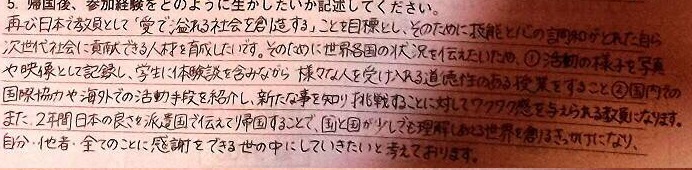 5. 帰国後、参加経験をどのように生かしたいか記述してください。
再び日本で教員として「愛で溢れる社会を創造する」ことを目標とし、そのために技能と心の調和がとれた自ら
次世代社会に貢献できる人材を育成したいです。そのために世界各国の状況を伝えたいため、①活動の様子を写真
や映像として記録し、学生に体験談を含みながら様々な人を受け入れる道徳性のある授業をすること②国内での
国際協力や海外での活動手段を紹介し、新たな事を知り挑戦することに対してワクワク感を与えられる教員になります。
また、2年間日本の良さを派遣国で伝えて帰国することで、国と国が少しでも理解しあえる世界を創るきっかけになり、
自分・他者・全てのことに感謝をできる世の中にしていきたいと考えております。